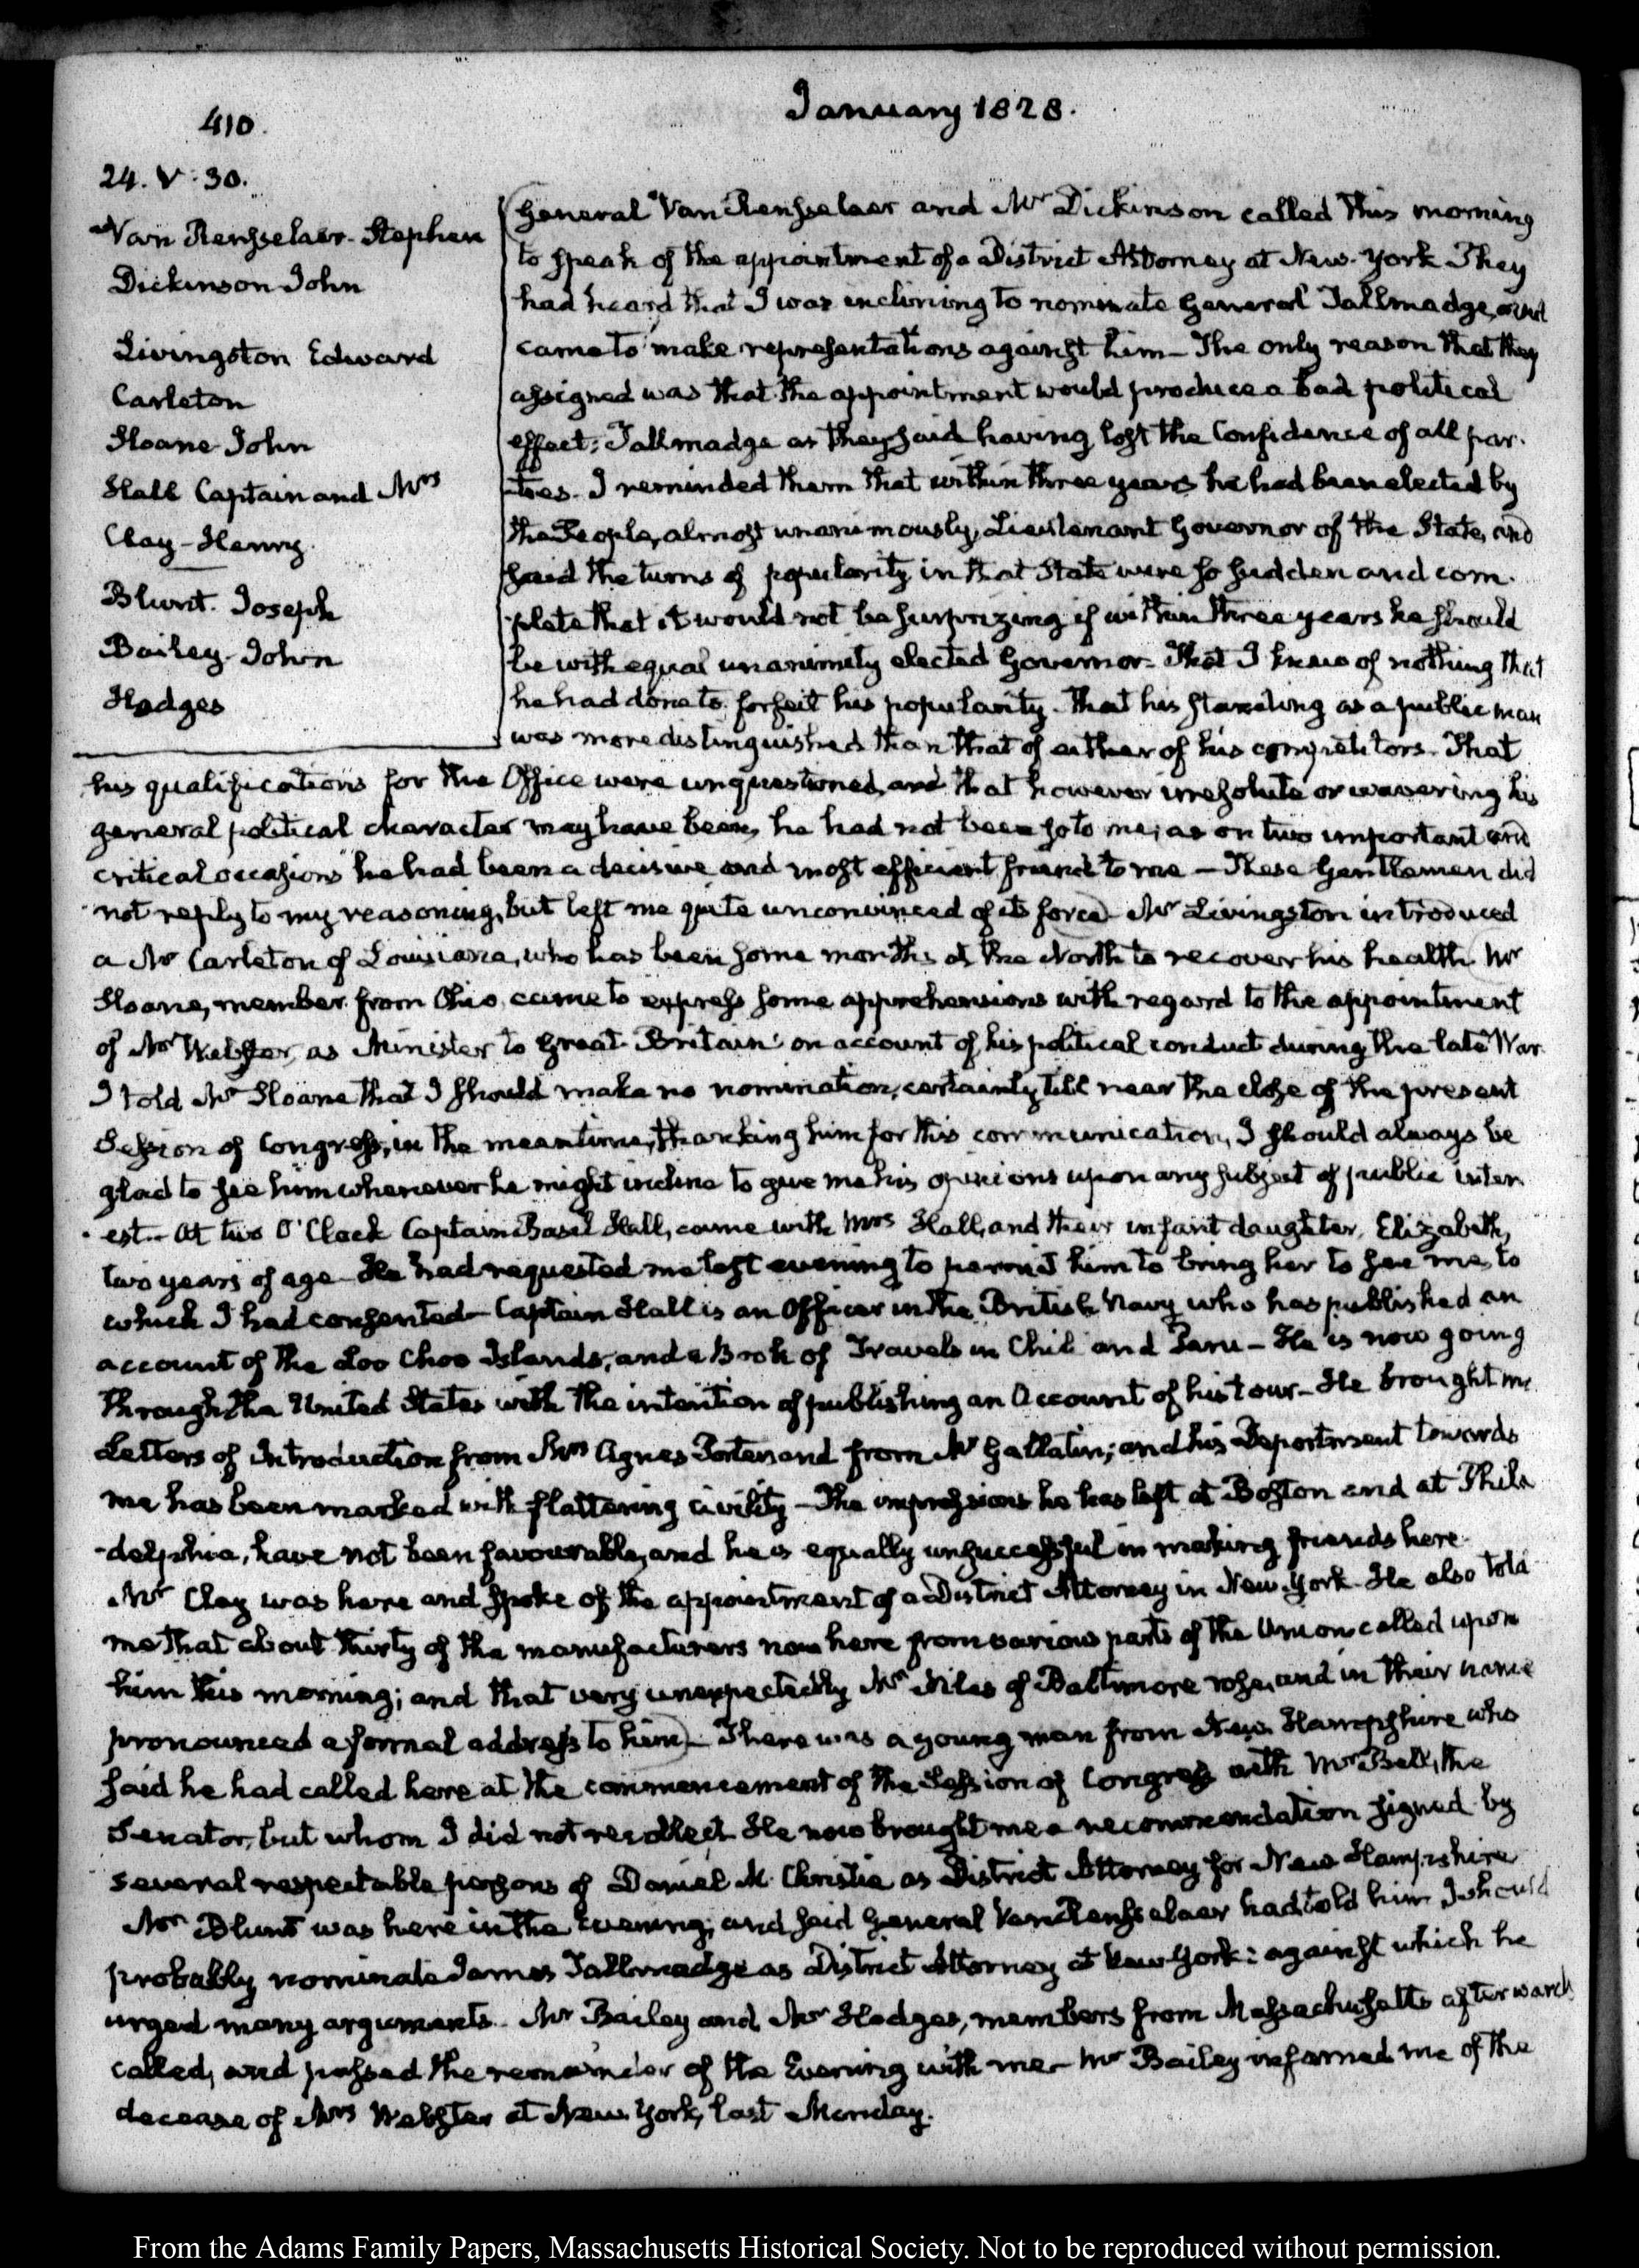 410.
January 1828.
24. V:30.
Van Rensselaer. Stephen
Dickinson John
Livingston Edward
Carleton
Sloane John
Hall Captain and Mrs
Clay-Henry.
Blunt. Joseph
Bailey-John
Hodges
General Van Rensselaer and Mr Dickinson called this morning
to speak of the appointment of a District Attorney at New-York They
had heard that I was inclining to nominate General Tallmadge, and
came to make representations against him- The only reason that they
assigned was that the appointment would produce a bad political
effect; Tallmadge as they said having lost the Confidence of all par-
-ties. I reminded them that within three years he had been elected by
the People, almost unanimously, Lieutenant Governor of the State, and
said the turns of popularity in that State were so sudden and com-
-plete that it would not be surprizing if within three years he should
be with equal unanimity elected Governor- That I knew of nothing that
he had done to forfeit his popularity. That his standing as a public man
was more distinguished than that of either of his competitors- That
his qualifications for the Office were unquestioned, and that however irresolute or wavering his
general political character may have been, he had not been so to me; as on two important and
critical occasions he had been a decisive and most efficient friend to me - These Gentlemen did
not reply to my reasoning, but left me quite unconvinced of its force) Mr Livingston introduced
a Mr Carleton of Louisiana, who has been some months at the North to recover his health (Mr
Sloane, member from Ohio, came to express some apprehensions with regard to the appointment
of Mr Webster, as Minister to Great-Britain on account of his political conduct during the late War.
I told Mr Sloane that I should make no nomination, certainly till near the close of the present
Session of Congress, in the meantime, thanking him for this communication, I should always be
glad to see him whenever he might incline to give me his opinions upon any subject of public inter
-est- At two O'Clock Captain Basil Hall, came with Mrs Hall, and their infant daughter, Elizabeth,
two years of age- He had requested me last evening to permit him to bring her to see me, to
which I had consented- Captain Hall is an Officer in the British Navy who has published an
account of the Loo Choo Islands, and a Book of Travels in Chili and Peru- He is now going
through the United States with the intention of publishing an Account of his tour- He brought me
Letters of Introduction from Mrs Agnes Porter and from Mr Gallatin; and his Deportment towards
me has been marked with flattering civility- The impressions he has left at Boston and at Phila
-delphia, have not been favourable, and he is equally unsuccessful in making friends here-
Mr Clay was here and spoke of the appointment of a District Attorney in New-York- He also told
me that about thirty of the manufacturers now here from various parts of the Union called upon
him this morning; and that very unexpectedly Mr Niles of Baltimore rose, and in their name
pronounced a formal address to him)- There was a young man from New-Hampshire who
said he had called here at the commencement of the Session of Congress with Mr Bell, the
Senator, but whom I did not recollect. He now brought me a recommendation signed by
several respectable persons of Daniel M. Christie as District Attorney for New-Hampshire
Mr Blunt was here in the Evening; and said General Van Rensselaer had told him I should
probably nominate James Tallmadge as District Attorney at New-York: against which he
urged many arguments- Mr Bailey and Mr Hodges, members from Massachusetts afterwards
called, and passed the remainder of the Evening with me- Mr Bailey informed me of the
decease of Mrs Webster at New-York, last Monday.
From the Adams Family Papers, Massachusetts Historical Society. Not to be reproduced without permission.